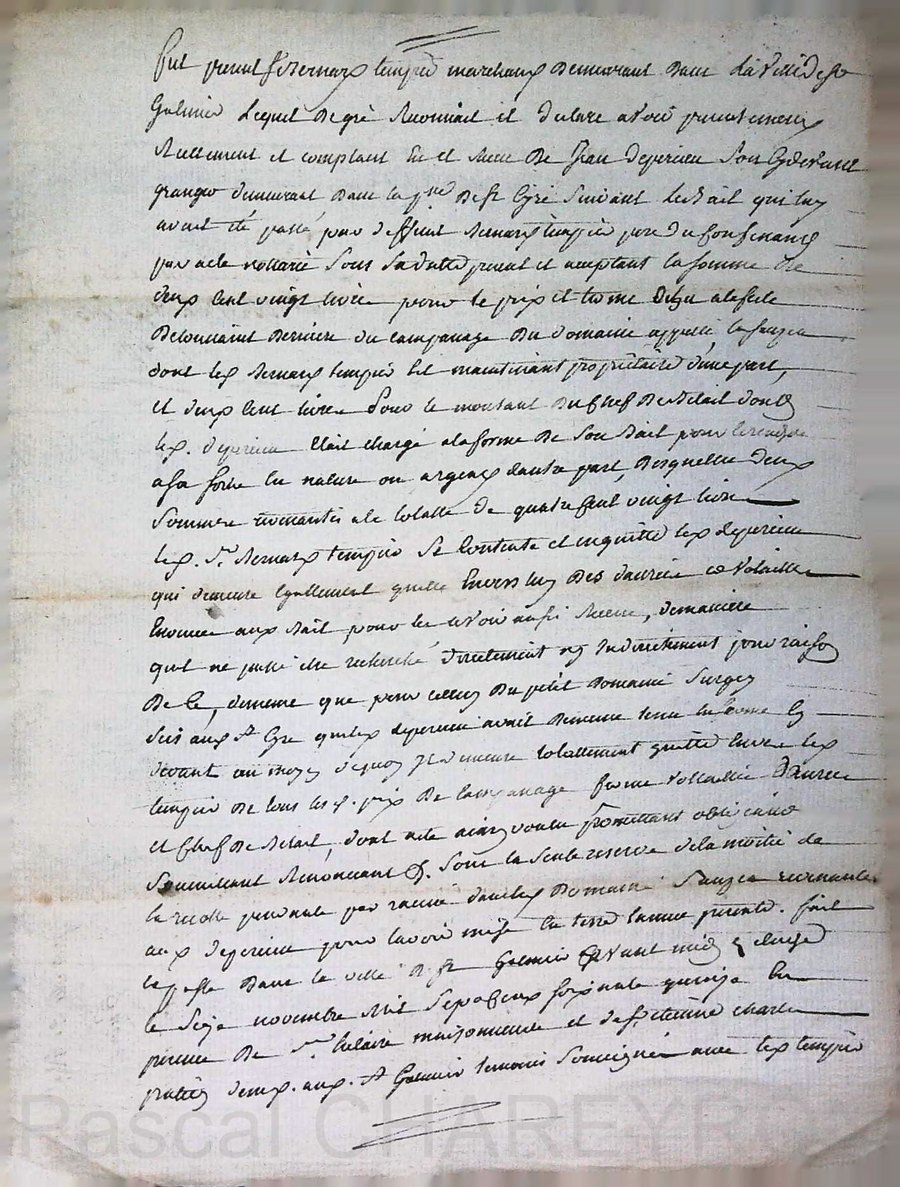 Fut présent Sr Bernard tempier marchand Demeurant Dans La ville de St
Galmier Lequel De gré Reconnait et declare avoir presentement
Reellement et comptant Eu et Receu De Jean deperieu Son Cydevant
granger demeurant Dans la psse De St Cyre Suivant Le Bail qui luy
avait été passé par deffunt Bernard tempier pere du Confessant
par acte nottarié Sous Sa datte present et acceptant la somme De
deux Cent vingt livre pour le prix et terme Echu a la fete
De toussaint Derniere du campanage Du Domaine appellé
dont led Bernard tempier Est maintenant propriétaire d'une part,
et deux Cent livre pour le montant Du Chef De Betail dont
led. deperieu Etait chargé a la forme De Son Bail pour
a Sa forme En nature ou argent d'autre part, Desquelles deux
Sommes montantes a la totalle de quatre Cent vingt livre
led. Sr Bernard tempier Se Contente et en quitte led deperieu
qui demeure Egallement quitte Envers luy Des danrée et Volaille
Enoncée aux Bail pour les avoir aussi Receue, de maniere
quil ne puisse etre recherché directement ny Indirectement pour raison
De Ce, de meme que pour Celluy Du petit Domaine
Scis aux St Cyre que led deperieu avait De meme tenu En ferme Cy
devant au moyen dequoy Il demeure totallement quitte Envers led
tempier De tous les prix De Campanage ferme Vollaille Danrée
et Chef De Betail, dont acte ainsy voulu promettant obligeant
Soumettant Renonceant &. Sous la Seule reserve de la moitié de
la recolte pendante par racine dans led Domaine revenante
aux deperieu pour l'avoir mise En terre l'année presente. fait
et passé Dans la ville De St Galmier avant midy
le Seize novembre Mil Sept Cent Soixante quinze En
presence De Sr hilaire maisonneuve et de Sr Etienne charle
demt. aux. St Galmier temoins Soussignés avec led tempier
Pascal CHAREYRON